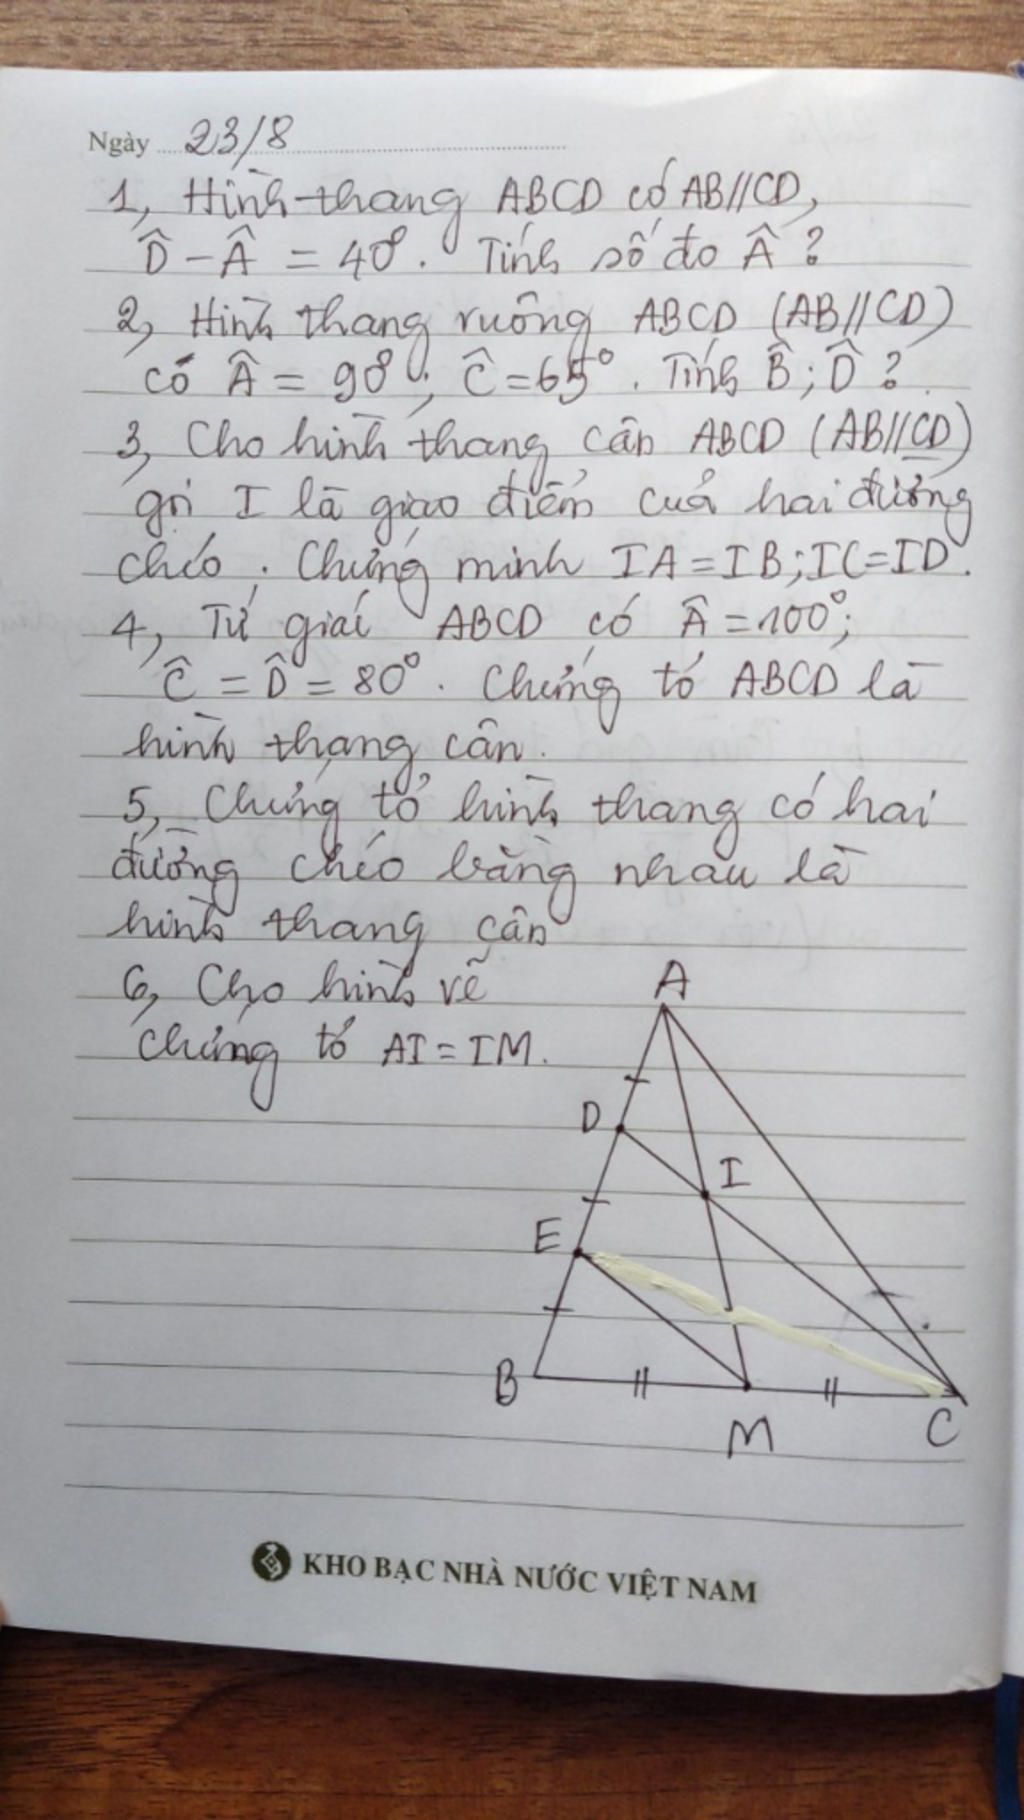 Ngày 23/8
1, Hình thang ABCD có AB//CD,
D̂ - Â = 40°. Tính số đo Â ?
2, Hình thang vuông ABCD (AB//CD)
có Â = 90°; Ĉ = 65°. Tính B̂; D̂ ?
3, Cho hình thang cân ABCD (AB//CD)
gọi I là giao điểm của hai đường
chéo. Chứng minh IA = IB; IC = ID.
4, Tứ giác ABCD có Â = 100°;
Ĉ = D̂ = 80°. Chứng tỏ ABCD là
hình thang cân.
5, Chứng tỏ hình thang có hai
đường chéo bằng nhau là
hình thang cân
6, Cho hình vẽ
chứng tỏ AI = IM.
A
D
I
E
B
M
C
KHO BẠC NHÀ NƯỚC VIỆT NAM